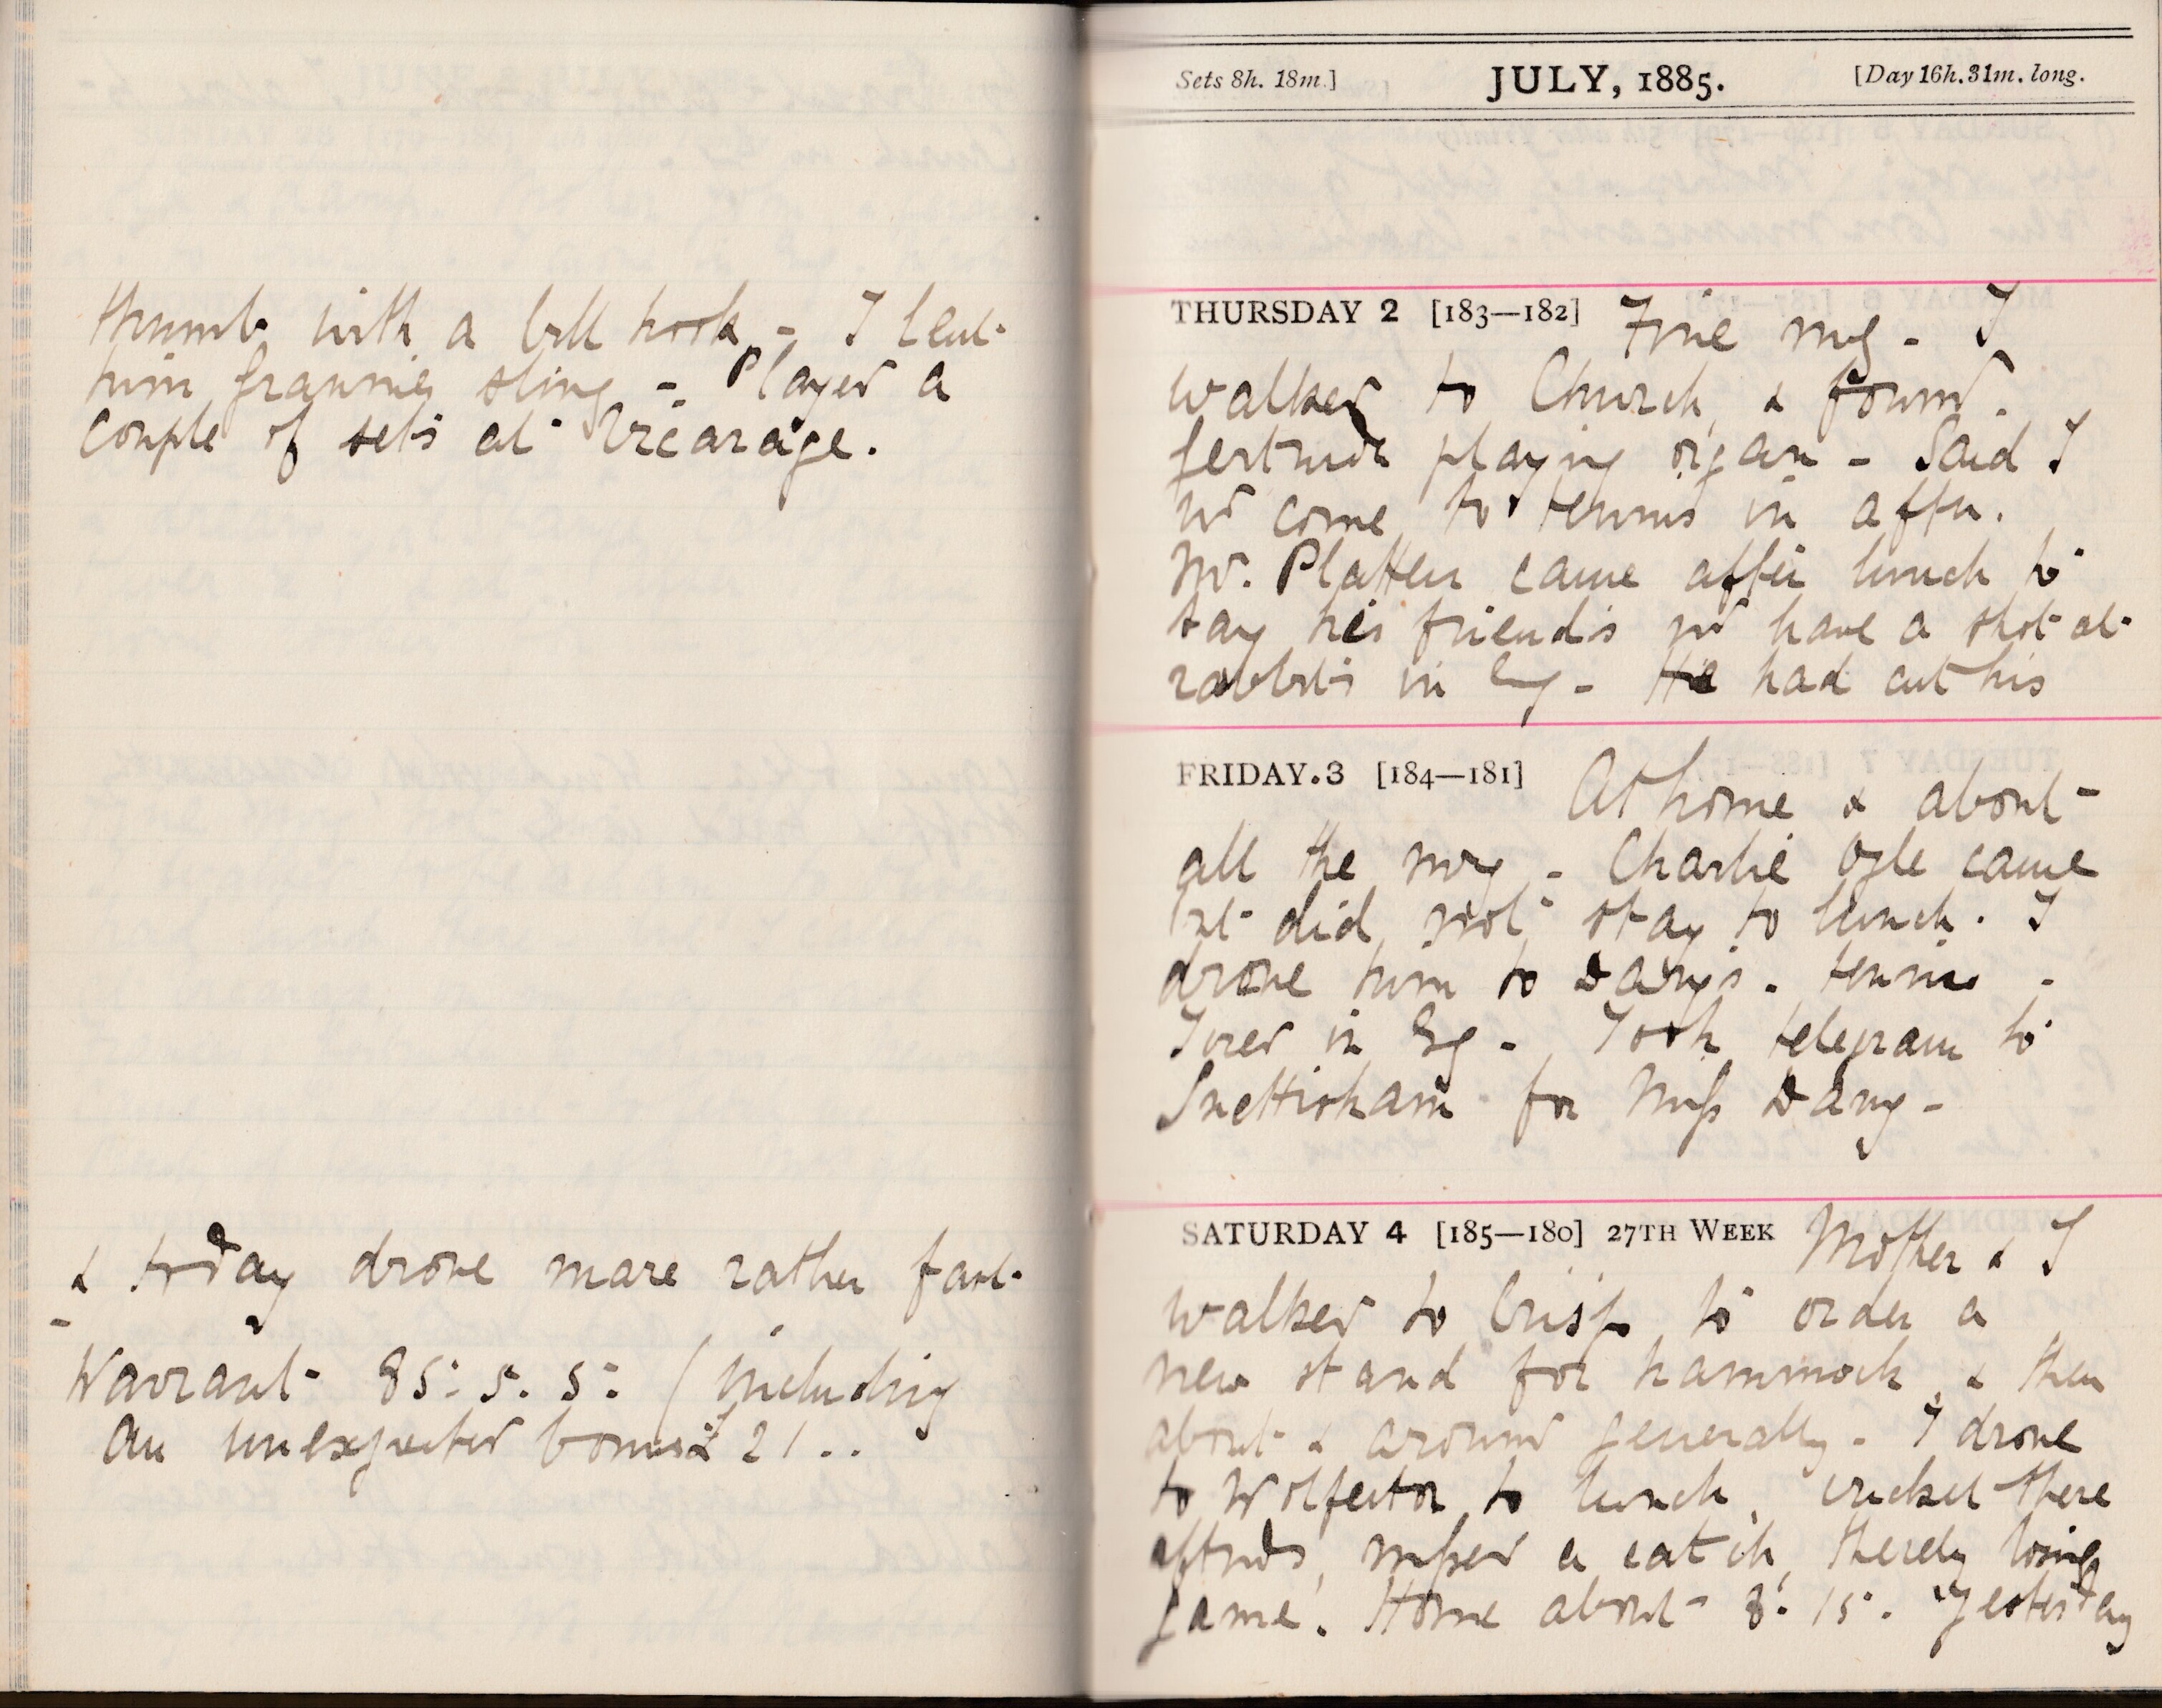 thumb with a bill hook - I lent
him Grannies sling - Played a
couple of sets at Vicarage.
& today drove mare rather fast
Warrant 85: 5. 5: (including
an unexpected bonus £21..
Sets 8h. 18m.] JULY, 1885. [Day 16h. 31m. long.
THURSDAY 2 [183—182] Fine mg - I
walked to Church, & found
Gertrude playing organ - Said I
wd come to tennis in aftn.
Mr. Platten came after lunch to
say his friends wd have a shot at
rabbits in Evg - He had cut his
FRIDAY. 3 [184—181] At home & about
all the mg - Charlie Ogle came
but did not stay to lunch. I
drove him to Davy's. tennis -
Tired in Evg - Took telegram to
Snettisham for Miss Davy -
SATURDAY 4 [185—180] 27TH WEEK Mother & I
walked to Crisp to order a
new stand for hammock, & then
about & around generally - I drove
to Wolferton to lunch. cricket there
aftwds, missed a catch, thereby losing
game. Home about 8: 15. Yesterday